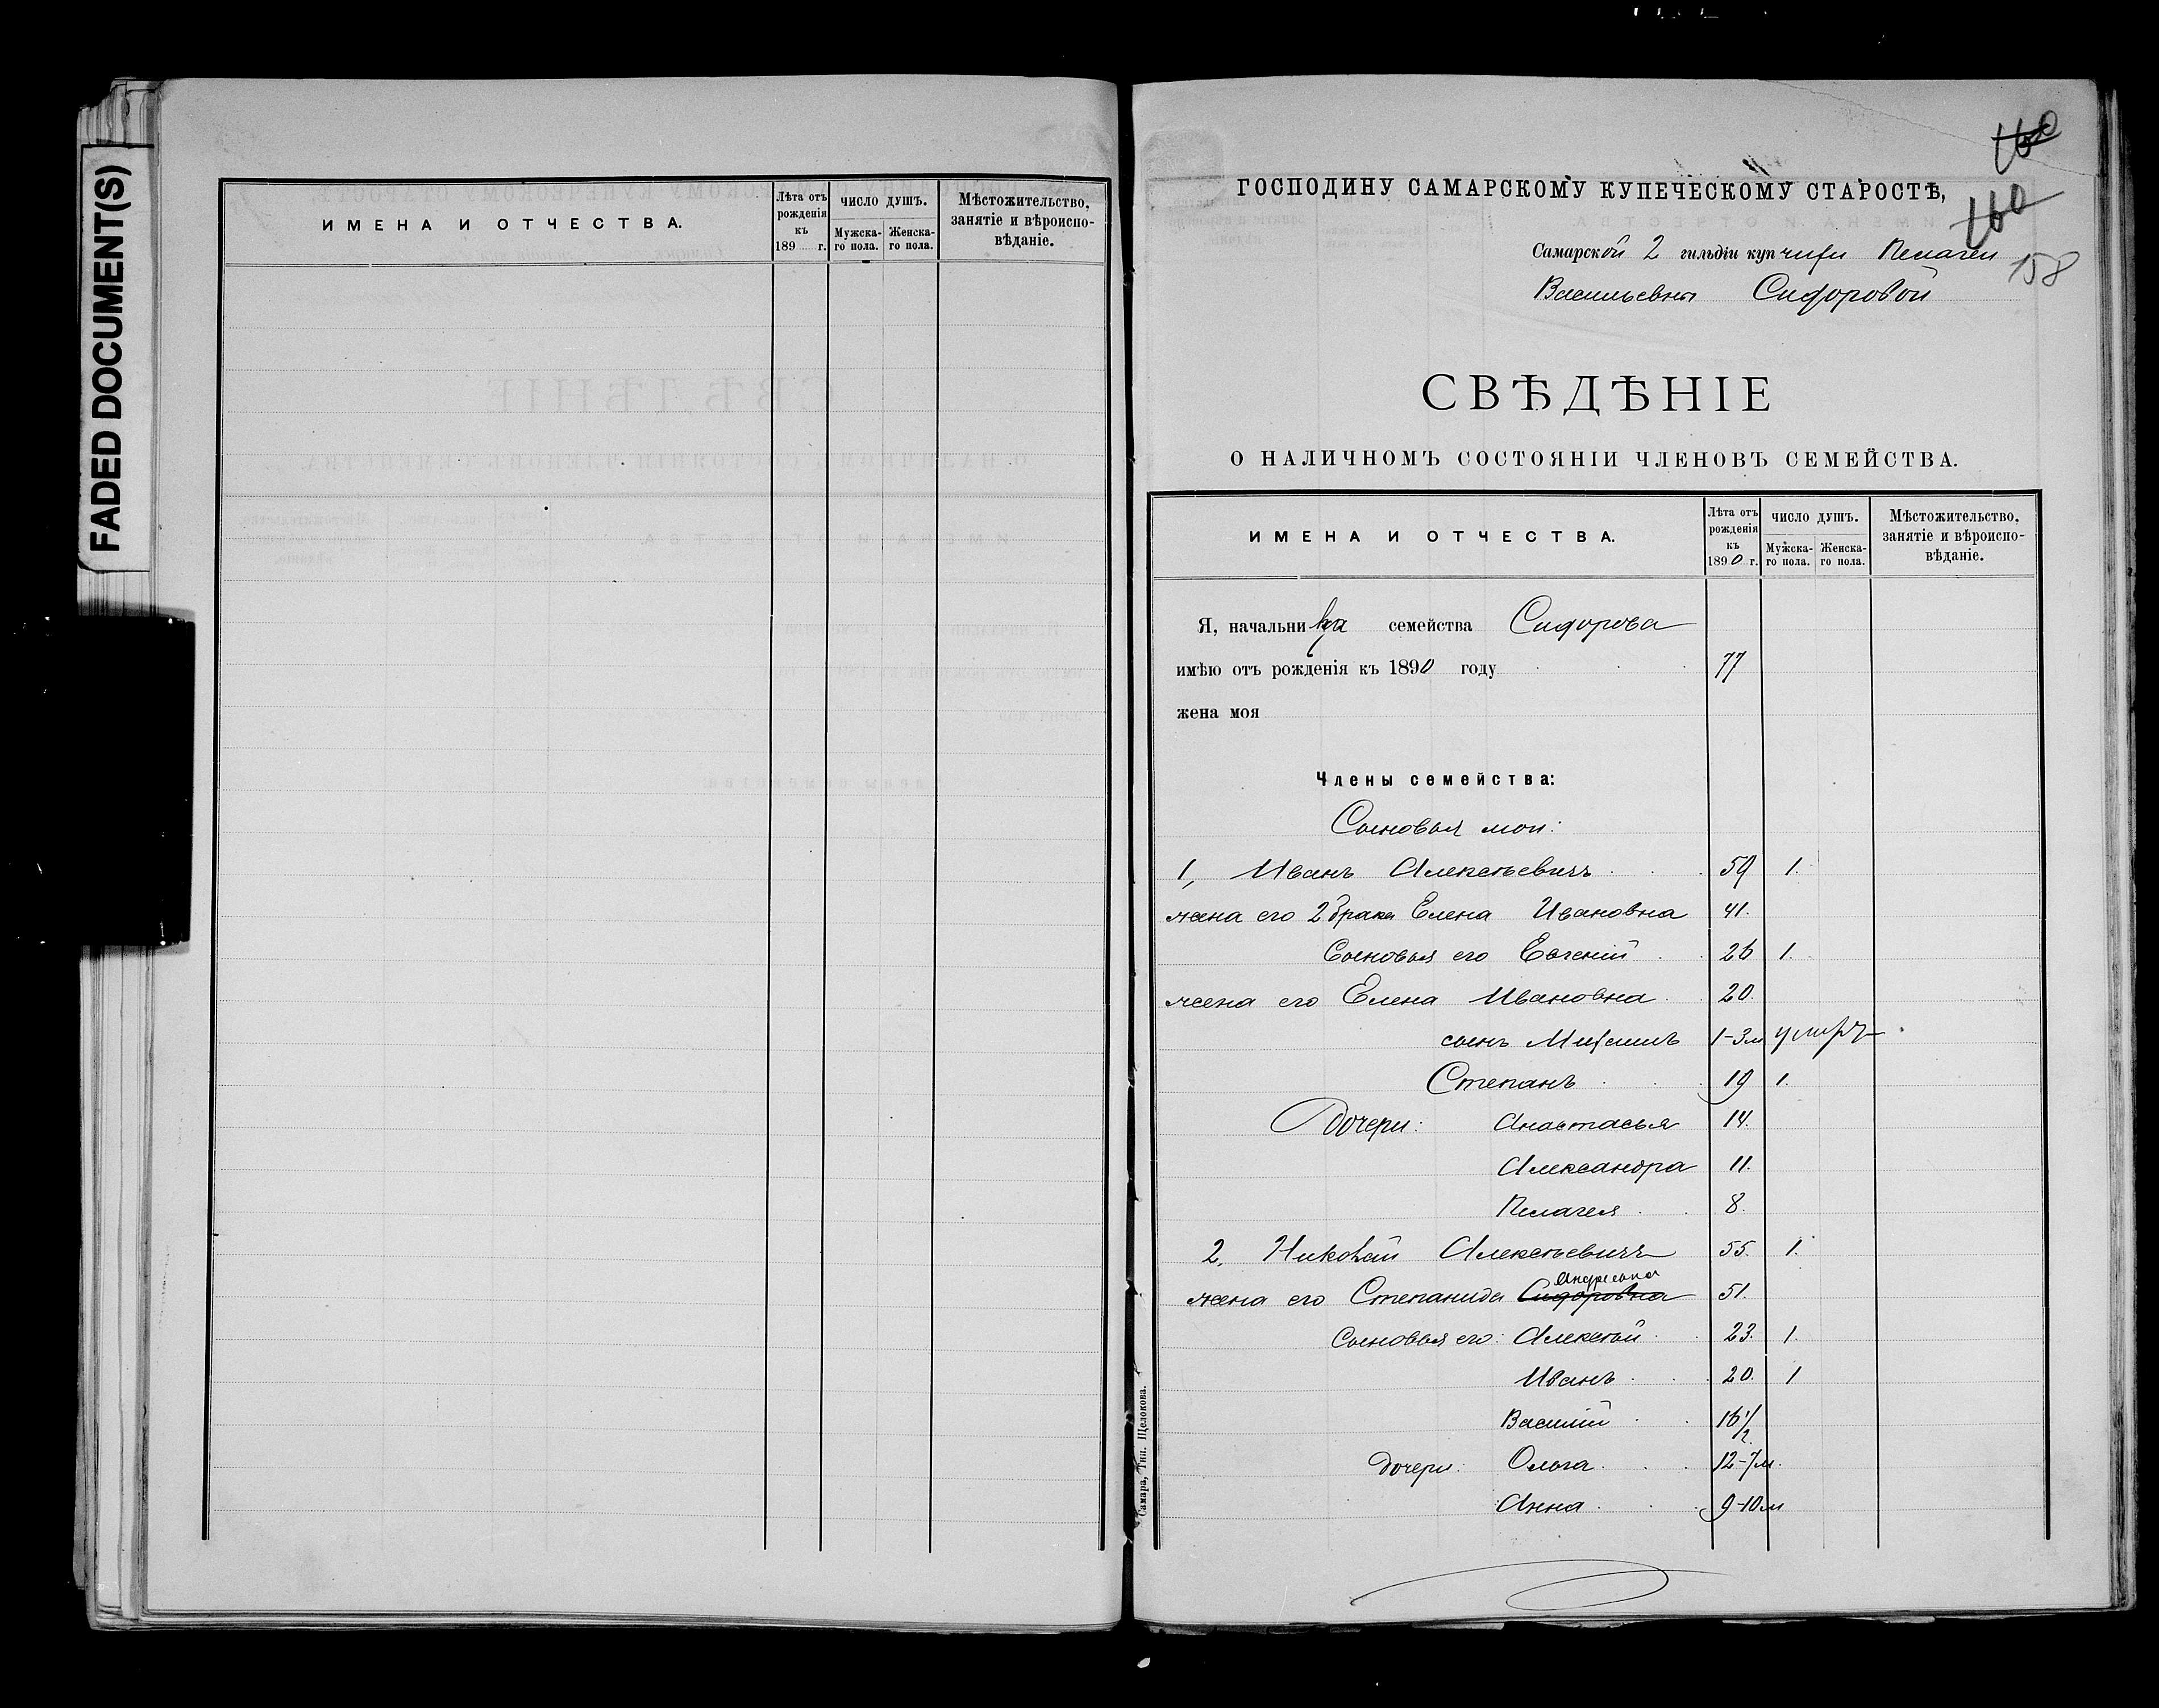 FADED DOCUMENT(S)
ИМЕНА И ОТЧЕСТВА.
Лѣта отъ рожденія къ 189 г.
ЧИСЛО ДУШЪ.
Мужска-го пола.
Женска-го пола.
Мѣстожительство, занятіе и вѣроиспо-вѣданіе.
160
160
158
ГОСПОДИНУ САМАРСКОМУ КУПЕЧЕСКОМУ СТАРОСТѢ,
Самарской 2 гильдіи купчихи Пелагеи
Васильевны Сидоровой
СВѢДѢНІЕ
О НАЛИЧНОМЪ СОСТОЯНІИ ЧЛЕНОВЪ СЕМЕЙСТВА.
ИМЕНА И ОТЧЕСТВА.
Лѣта отъ рожденія къ 1890 г.
ЧИСЛО ДУШЪ.
Мужска-го пола.
Женска-го пола.
Мѣстожительство, занятіе и вѣроиспо-вѣданіе.
Я, начальница семейства Сидорова
имѣю отъ рожденія къ 1890 году 77
жена моя
Члены семейства:
Сыновья мои:
1, Иванъ Алексѣевичъ 59 1.
жена его 2 брака Елена Ивановна 41.
Сыновья его Евгений 26 1.
жена его Елена Ивановна 20.
сынъ Михаилъ 1-3м умеръ
Степанъ 19 1.
Дочери: Анастасья 14.
Александра 11.
Пелагея 8.
2. Николай Алексѣевичъ 55. 1.
Андреевна
жена его Степанида Сидоровна 51.
Сыновья его: Алексѣй 23. 1.
Иванъ 20. 1
Василий 16 1/2.
дочери: Ольга 12-7м.
Анна 9-10м
Самара, Тип. Щелокова.